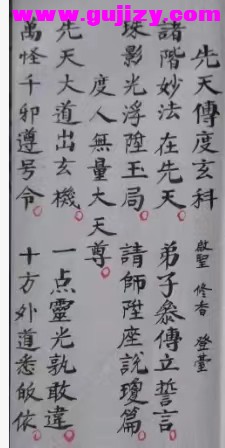 www.gujizy.com
先天傳度玄科
啟聖 修香 登堂
諸階妙法在先天 弟子叅傳立誓言
垛影光浮陞玉局 請師陞座說瓊篇
度人無量大天尊
先天大道出玄機 一点靈光孰敢違
萬怪千邪遵号令 十方外道悉皈依